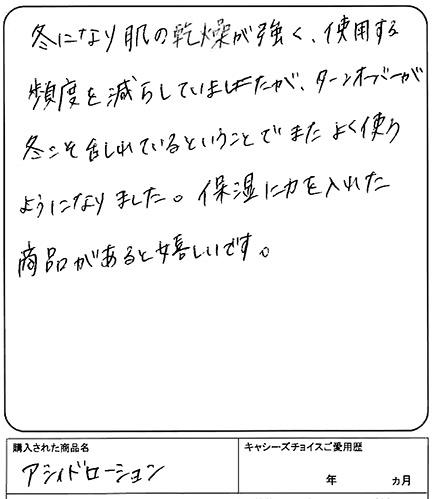 冬になり肌の乾燥が強く、使用する
頻度を減らしていましたが、ターンオーバーが
冬こそ乱れているということでまたよく使う
ようになりました。保湿に力を入れた
商品があると嬉しいです。
購入された商品名
キャシーズチョイスご愛用歴
アシィドローション
年 ヵ月